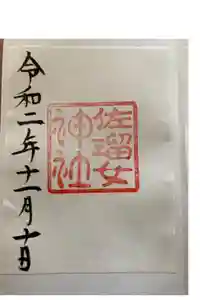 佐瑠女
神社
令和二年十一月十日